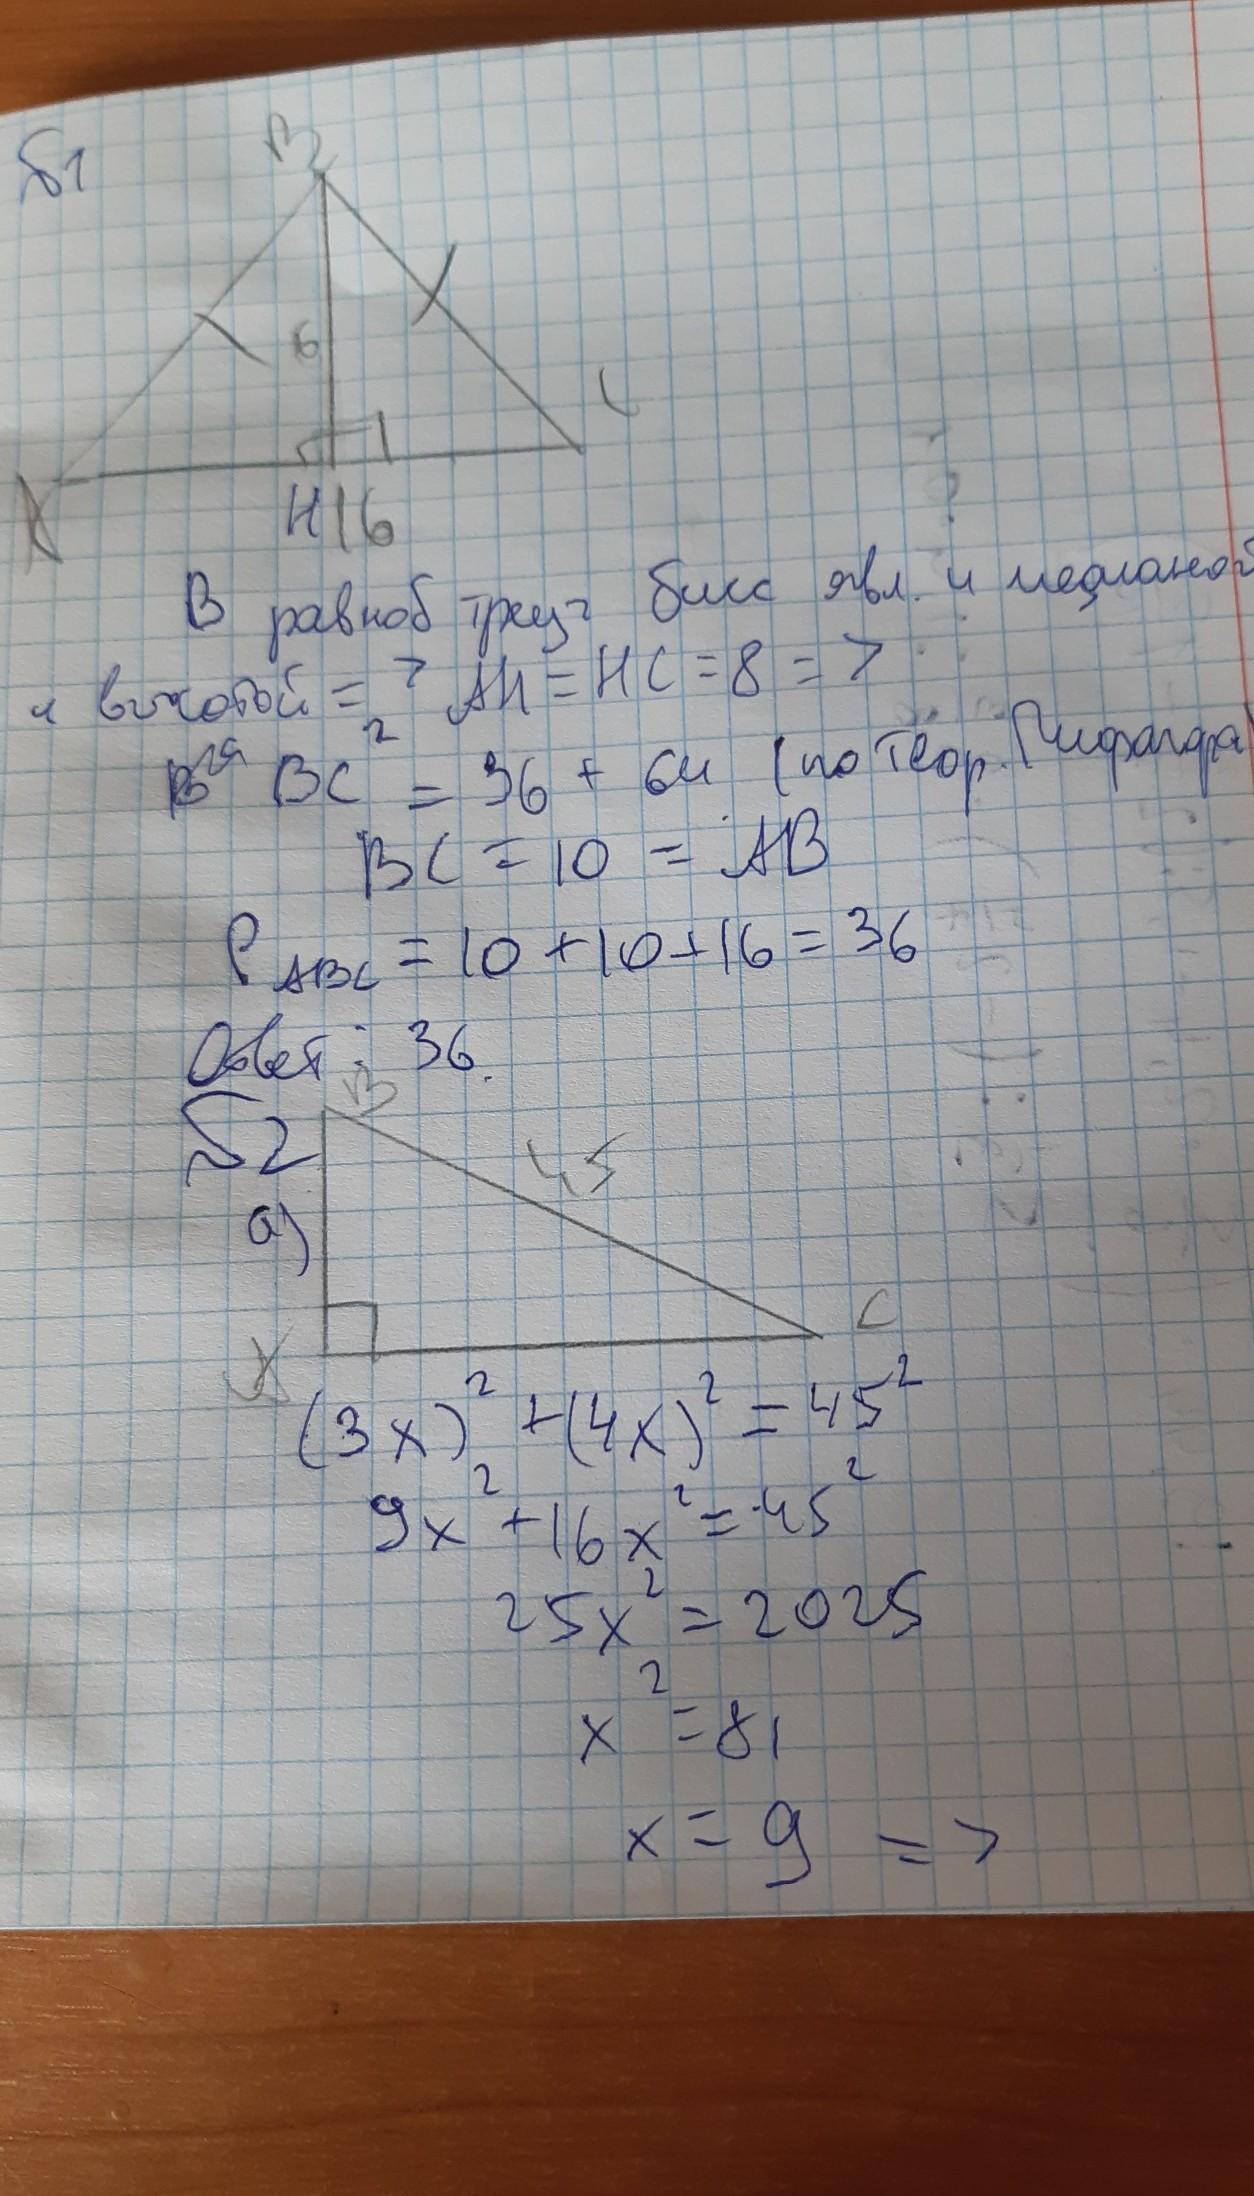 Б1
B
6
A
C
H 16
В равноб треуг бисс явл. и медианой
и высотой => AH = HC = 8 =>
BC² = 36 + 64 (по теор. Пифагора)
BC = 10 = AB
P ABC = 10 + 10 + 16 = 36
Ответ: 36.
Б2
B
45
а)
A
C
(3x)² + (4x)² = 45²
9x² + 16x² = 45²
25x² = 2025
x² = 81
x = 9 =>